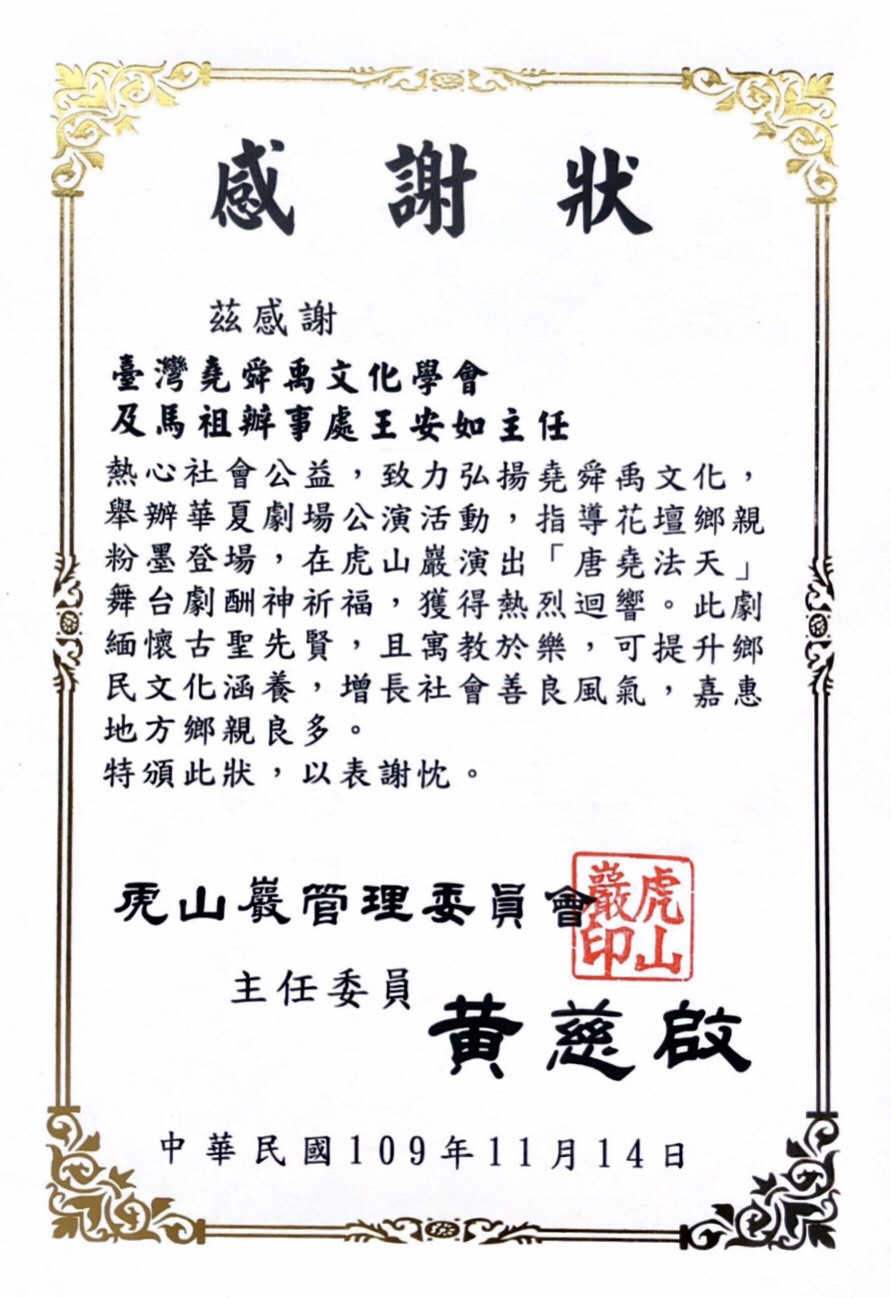 感謝狀
茲感謝
臺灣堯舜禹文化學會
及馬祖辦事處王安如主任
熱心社會公益，致力弘揚堯舜禹文化，
舉辦華夏劇場公演活動，指導花壇鄉親
粉墨登場，在虎山巖演出「唐堯法天」
舞台劇酬神祈福，獲得熱烈迴響。此劇
緬懷古聖先賢，且寓教於樂，可提升鄉
民文化涵養，增長社會善良風氣，嘉惠
地方鄉親良多。
特頒此狀，以表謝忱。
虎山巖管理委員會
虎山
巖印
主任委員
黃慈啟
中華民國109年11月14日